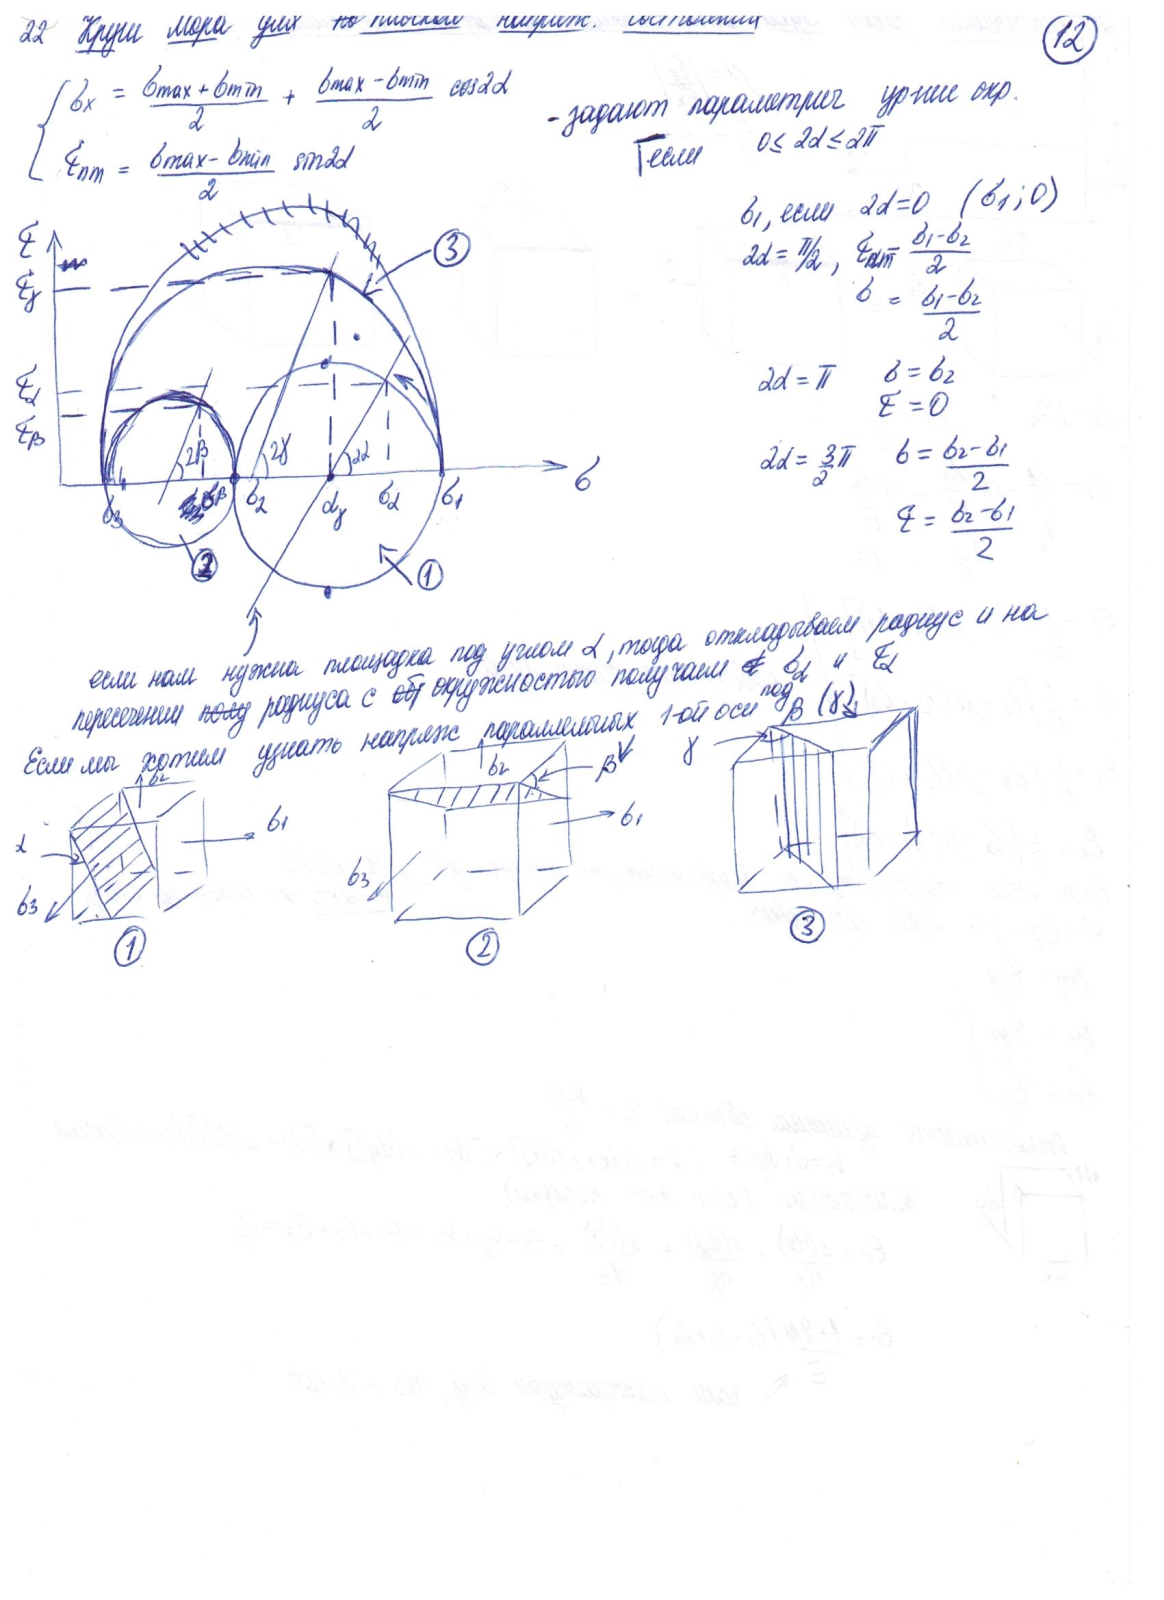 22 Круги Мора для плоского напряж. состояния
12
σx = (σmax + σmin)/2 + (σmax − σmin)/2 cos2α
τnm = (σmax − σmin)/2 sin2α
- задают параметрич ур-ние окр.
если 0 ≤ 2α ≤ 2π
σ1, если 2α=0 (σ1; 0)
2α = π/2, τnm = (σ1−σ2)/2
σ = (σ1−σ2)/2
2α = π σ = σ2
τ = 0
2α = 3/2 π σ = (σ2−σ1)/2
τ = (σ2−σ1)/2
τ
τγ
3
τα
τβ
2β 2γ 2α
σ3 σβ σ2 σγ σα σ1 σ
2
1
если нам нужна площадка под углом α, тогда откладываем радиус и на
пересечении радиуса с окружностью получаем σα и τα
Если мы хотим узнать напряж параллельных 1-ой оси под β (γ)
σ2 σ1 α σ3
1
σ2 β σ1 σ3
2
γ
3